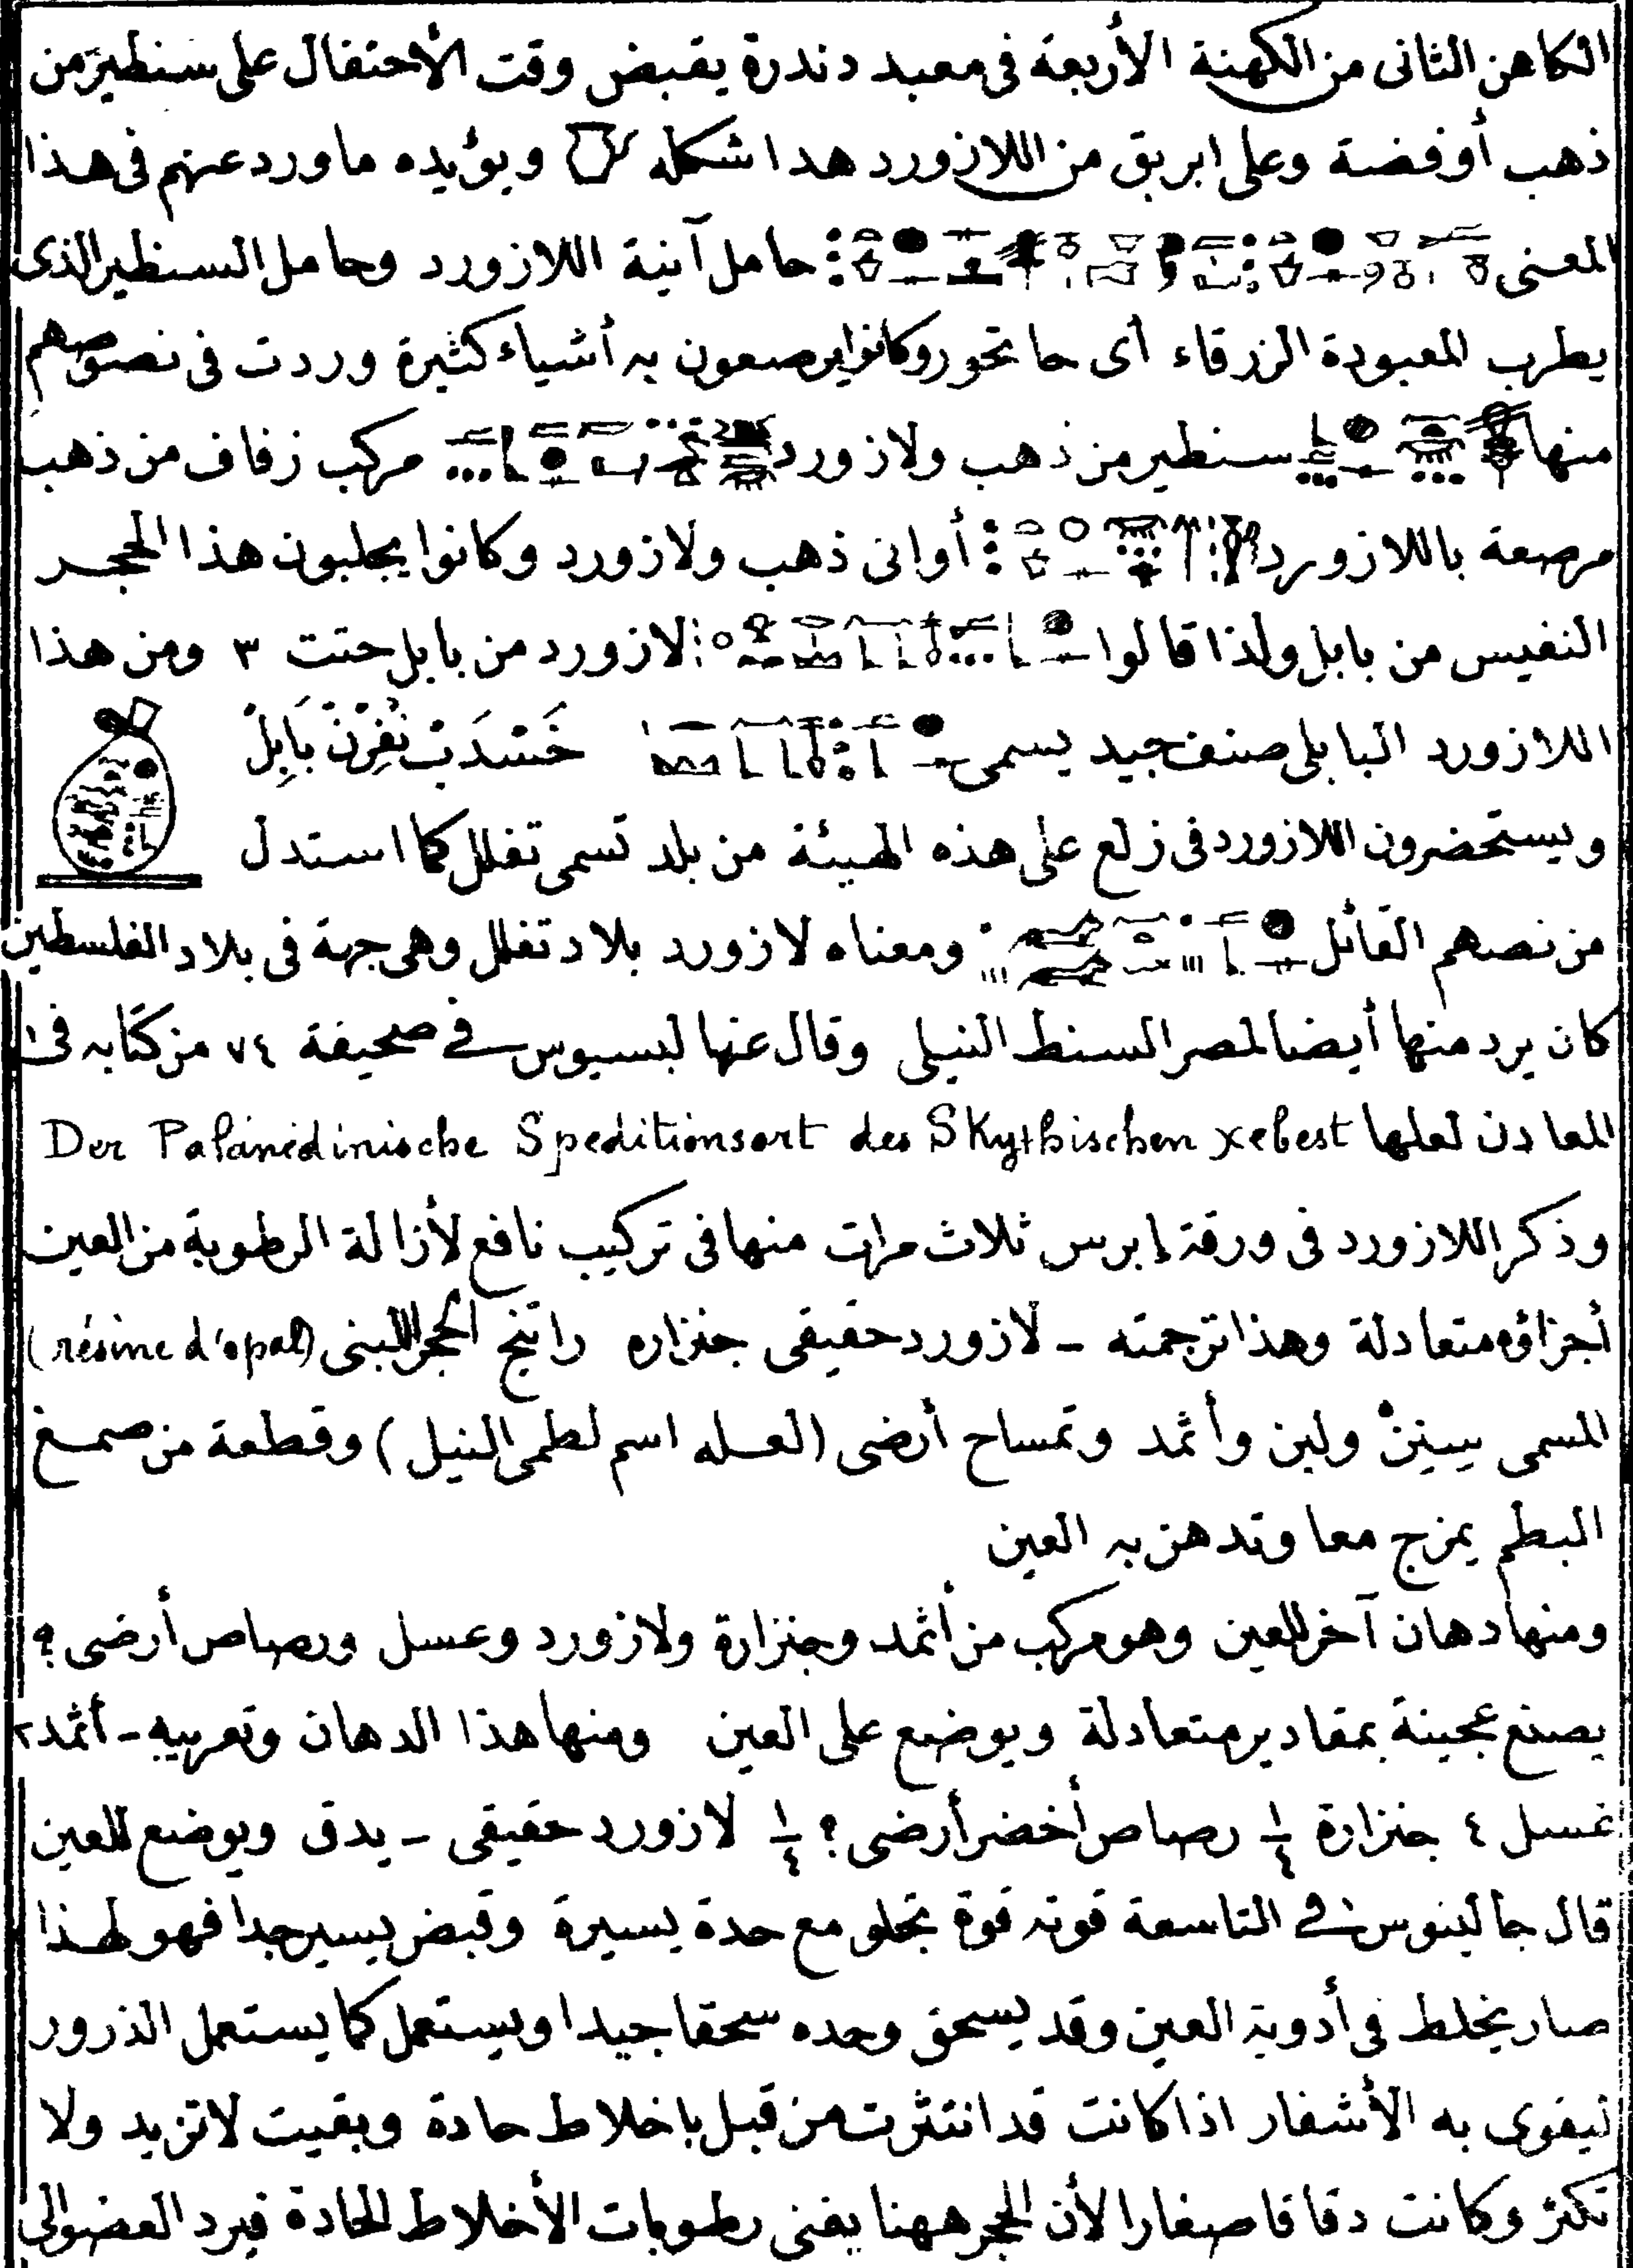 الكاهن الثانى من الكهنة الأربعة فى معبد دندرة يقبض وقت الأحتفال على سنطير من
ذهب أوفضة وعلى ابريق من اللازورد هذا شكله ويؤيده ماورد عنهم فى هذا
المعنى حامل آنية اللازورد وحامل السنطير الذى
يطرب المعبودة الزرقاء أى حاتحور وكانوا يرصعون به أشياء كثيرة وردت فى نصوصهم
منها سنطير من ذهب ولازورد مركب زفاف من ذهب
مرصعة باللازورد أوانى ذهب ولازورد وكانوا يجلبون هذا الحجر
النفيس من بابل ولذا قالوا لازورد من بابل حتت ٣ ومن هذا
اللازورد البابلى صنف جيد يسمى خَسْدَبْ نُفِرْنْ بَابِلْ
ويستحضرون اللازورد فى زلع على هذه الهيئة من بلد تسمى تفلل كما استدل
من نصهم القائل ومعناه لازورد بلاد تفلل وهى جهة فى بلاد الفلسطين
كان يرد منها أيضا لمصر السنط النيلى وقال عنها لبسيوس فى صحيفة ٧٤ من كتابه فى
المعادن لعلها Der Palänidinische Speditionsort des Skythischen xebest
وذكر اللازورد فى ورقة إبرس ثلاث مرات منها فى تركيب نافع لأزالة الرطوبة من العين
أجزاؤه متعادلة وهذا ترجمته - لازورد حقيقى جنزاره راتنج الحجر اللبنى (résine d'opal)
المسمى ولبن وأثمد وتمساح أرضى (لعله اسم لطمى النيل) وقطعة من صمغ
البطم يمزج معا وتدهن به العين
ومنها دهان آخر للعين وهو مركب من أثمد وجنزارة ولازورد وعسل ورصاص أرضى ؟
يصنع عجينة بمقادير متعادلة ويوضع على العين ومنها هذا الدهان وتعريبه - أثمد ٢
عسل ٤ جنزارة ١/٤ رصاص أخضر أرضى ؟ ١/٤ لازورد حقيقى - يدق ويوضع للعين
قال جالينوس فى التاسعة قوته قوة تجلو مع حدة يسيرة وقبض يسير جدا فهو لهذا
صار يخلط فى أدوية العين وقد يسحق وحده سحقا جيدا ويستعمل كما يستعمل الذرور
ليقوى به الأشفار اذا كانت قد انتثرت من قبل باخلاط حادة وبقيت لاتزيد ولا
تكثر وكانت دقاقا صغارا لأن الحجر ههنا يفنى رطوبات الأخلاط الحادة فيرد العضو الى